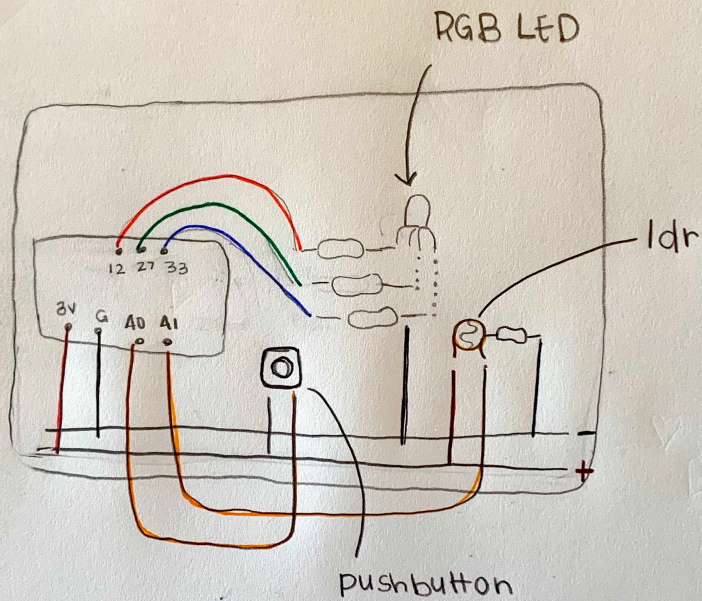 RGB LED
ldr
12 27 33
3V G A0 A1
-
+
pushbutton